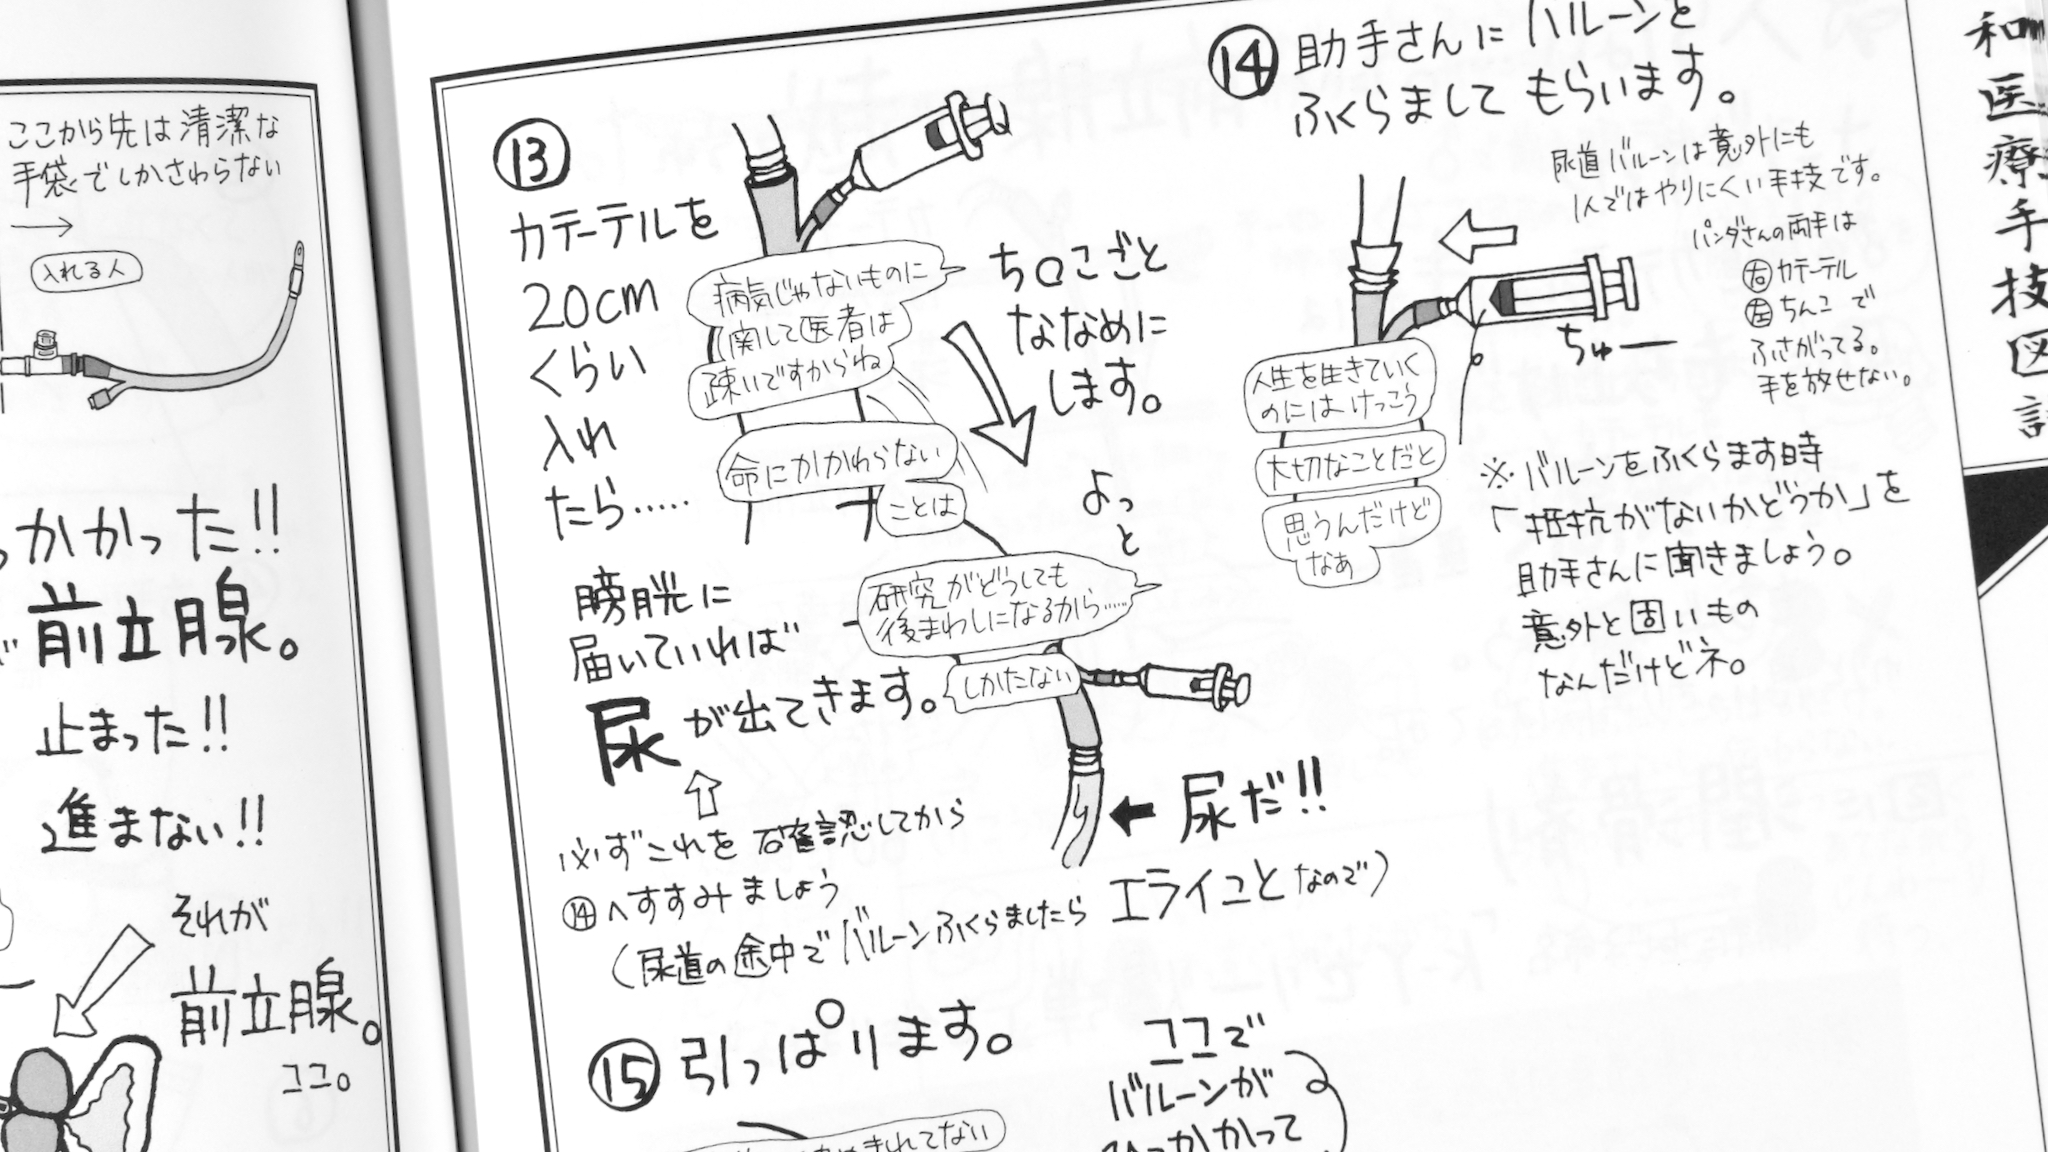 ここから先は清潔な
手袋でしかさわらない
入れる人
っかかった!!
前立腺。
止まった!!
進まない!!
それが
前立腺。
ココ。
⑬
カテーテルを
20cm
くらい
入れ
たら……
病気じゃないものに
関して医者は
疎いですからね
命にかかわらない
ことは
研究がどうしても
後まわしになるから……
しかたない
ち○こごと
ななめに
します。
よっ
と
膀胱に
届いていれば
尿が出てきます。
必ずこれを確認してから
⑭へすすみましょう
(尿道の途中でバルーンふくらましたら
エライコとなので)
尿だ!!
⑭ 助手さんにバルーンを
ふくらましてもらいます。
尿道バルーンは意外にも
1人ではやりにくい手技です。
パンダさんの両手は
右 カテーテル
左 ちんこ で
ふさがってる。
手を放せない。
ちゅー
人生を生きていく
のにはけっこう
大切なことだと
思うんだけど
なぁ
※バルーンをふくらます時
「抵抗がないかどうか」を
助手さんに聞きましょう。
意外と固いもの
なんだけどネ。
⑮ 引っぱります。
きれてない
ココで
バルーンが
ひっかかって
和医療手技図